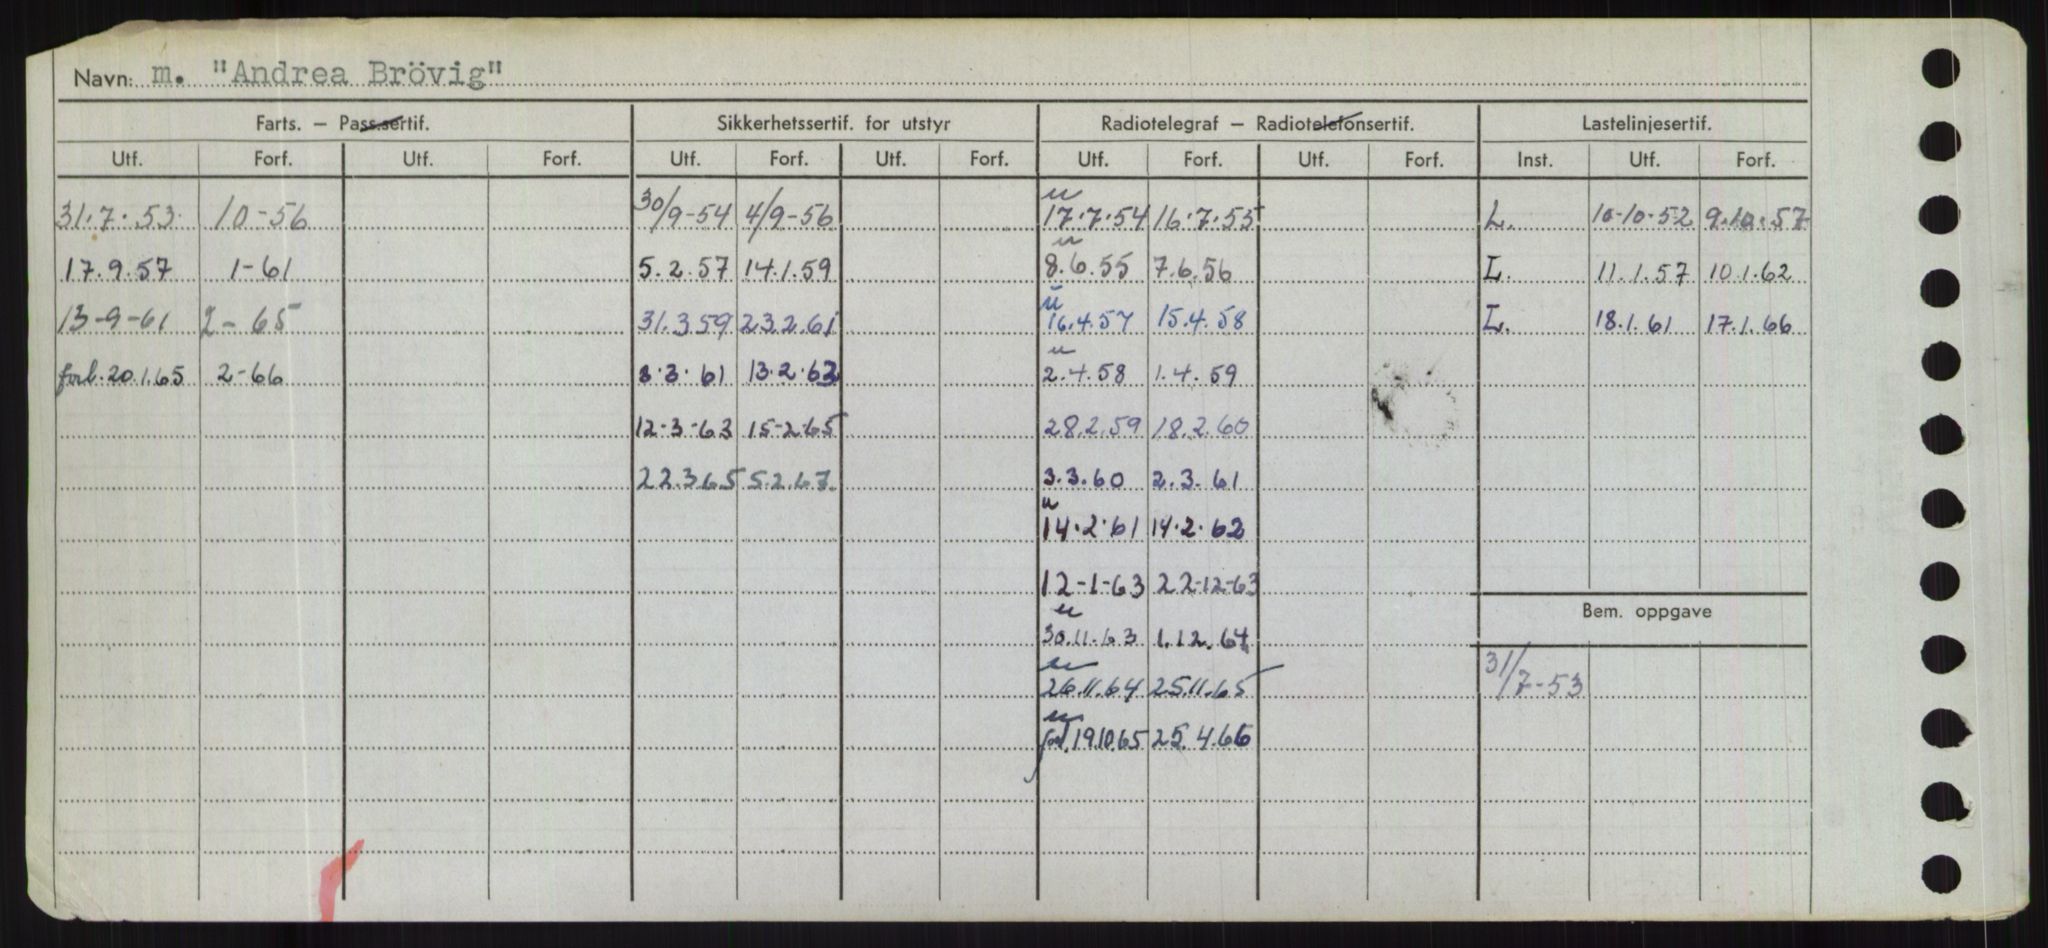 Navn: m. "Andrea Brövig"
Farts. — Pass.sertif. Sikkerhetssertif. for utstyr Radiotelegraf — Radiotelefonsertif. Lastelinjesertif.
Utf. Forf. Utf. Forf. Utf. Forf. Utf. Forf. Utf. Forf. Utf. Forf. Inst. Utf. Forf.
u
31.7.53. 10-56 30/9-54 4/9-56 17.7.54 16.7.55 L. 10-10-52 9.10.57
u
17.9.57 1-61 5.2.57 14.1.59 8.6.55 7.6.56 L. 11.1.57 10.1.62
u
13-9-61 2-65 31.3.59 23.2.61 16.4.57 15.4.58 L. 18.1.61 17.1.66
u
forl.20.1.65 2-66 8.3.61 13.2.63 2.4.58 1.4.59
12-3-63 15-2.65 28.2.59 18.2.60
22.3.65 5.2.67 3.3.60 2.3.61
u
14.2.61 14.2.62
12-1-63 22-12-63
Bem. oppgave
u
30.11.63 1.12.64
31/7-53
u
26.11.64 25.11.65
u
forl.19.10.65 25.4.66